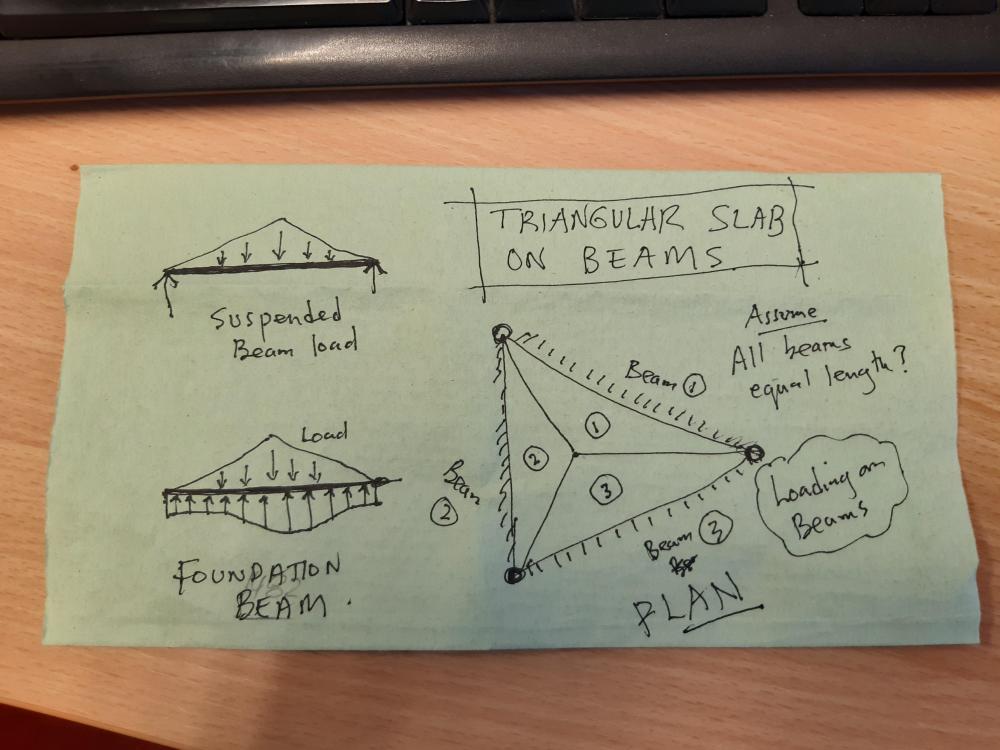 TRIANGULAR SLAB
ON BEAMS
Suspended
Beam load
Assume
All beams
equal length?
Beam ①
①
②
③
Beam
②
Load
Loading on
Beams
Beam ③
FOUNDATION
BEAM.
PLAN